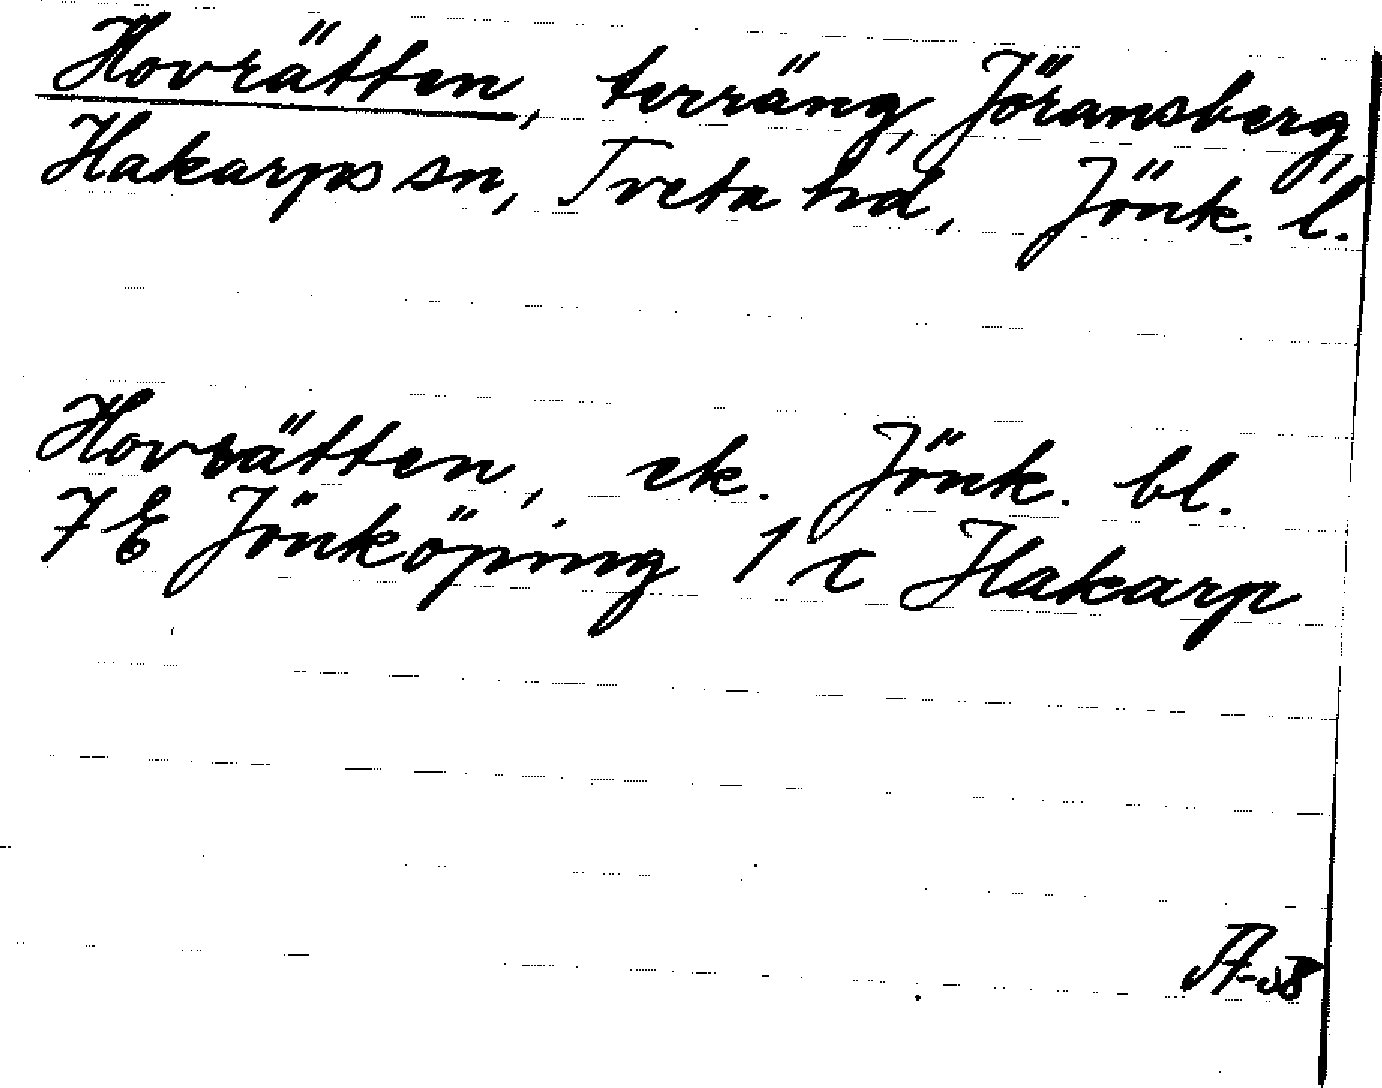 Hovrätten, terräng, Jöransberg,
Hakarps sn, Tveta hd, Jönk. l.
Hovrätten, ek. Jönk. bl.
7 E Jönköping 1 c Hakarp